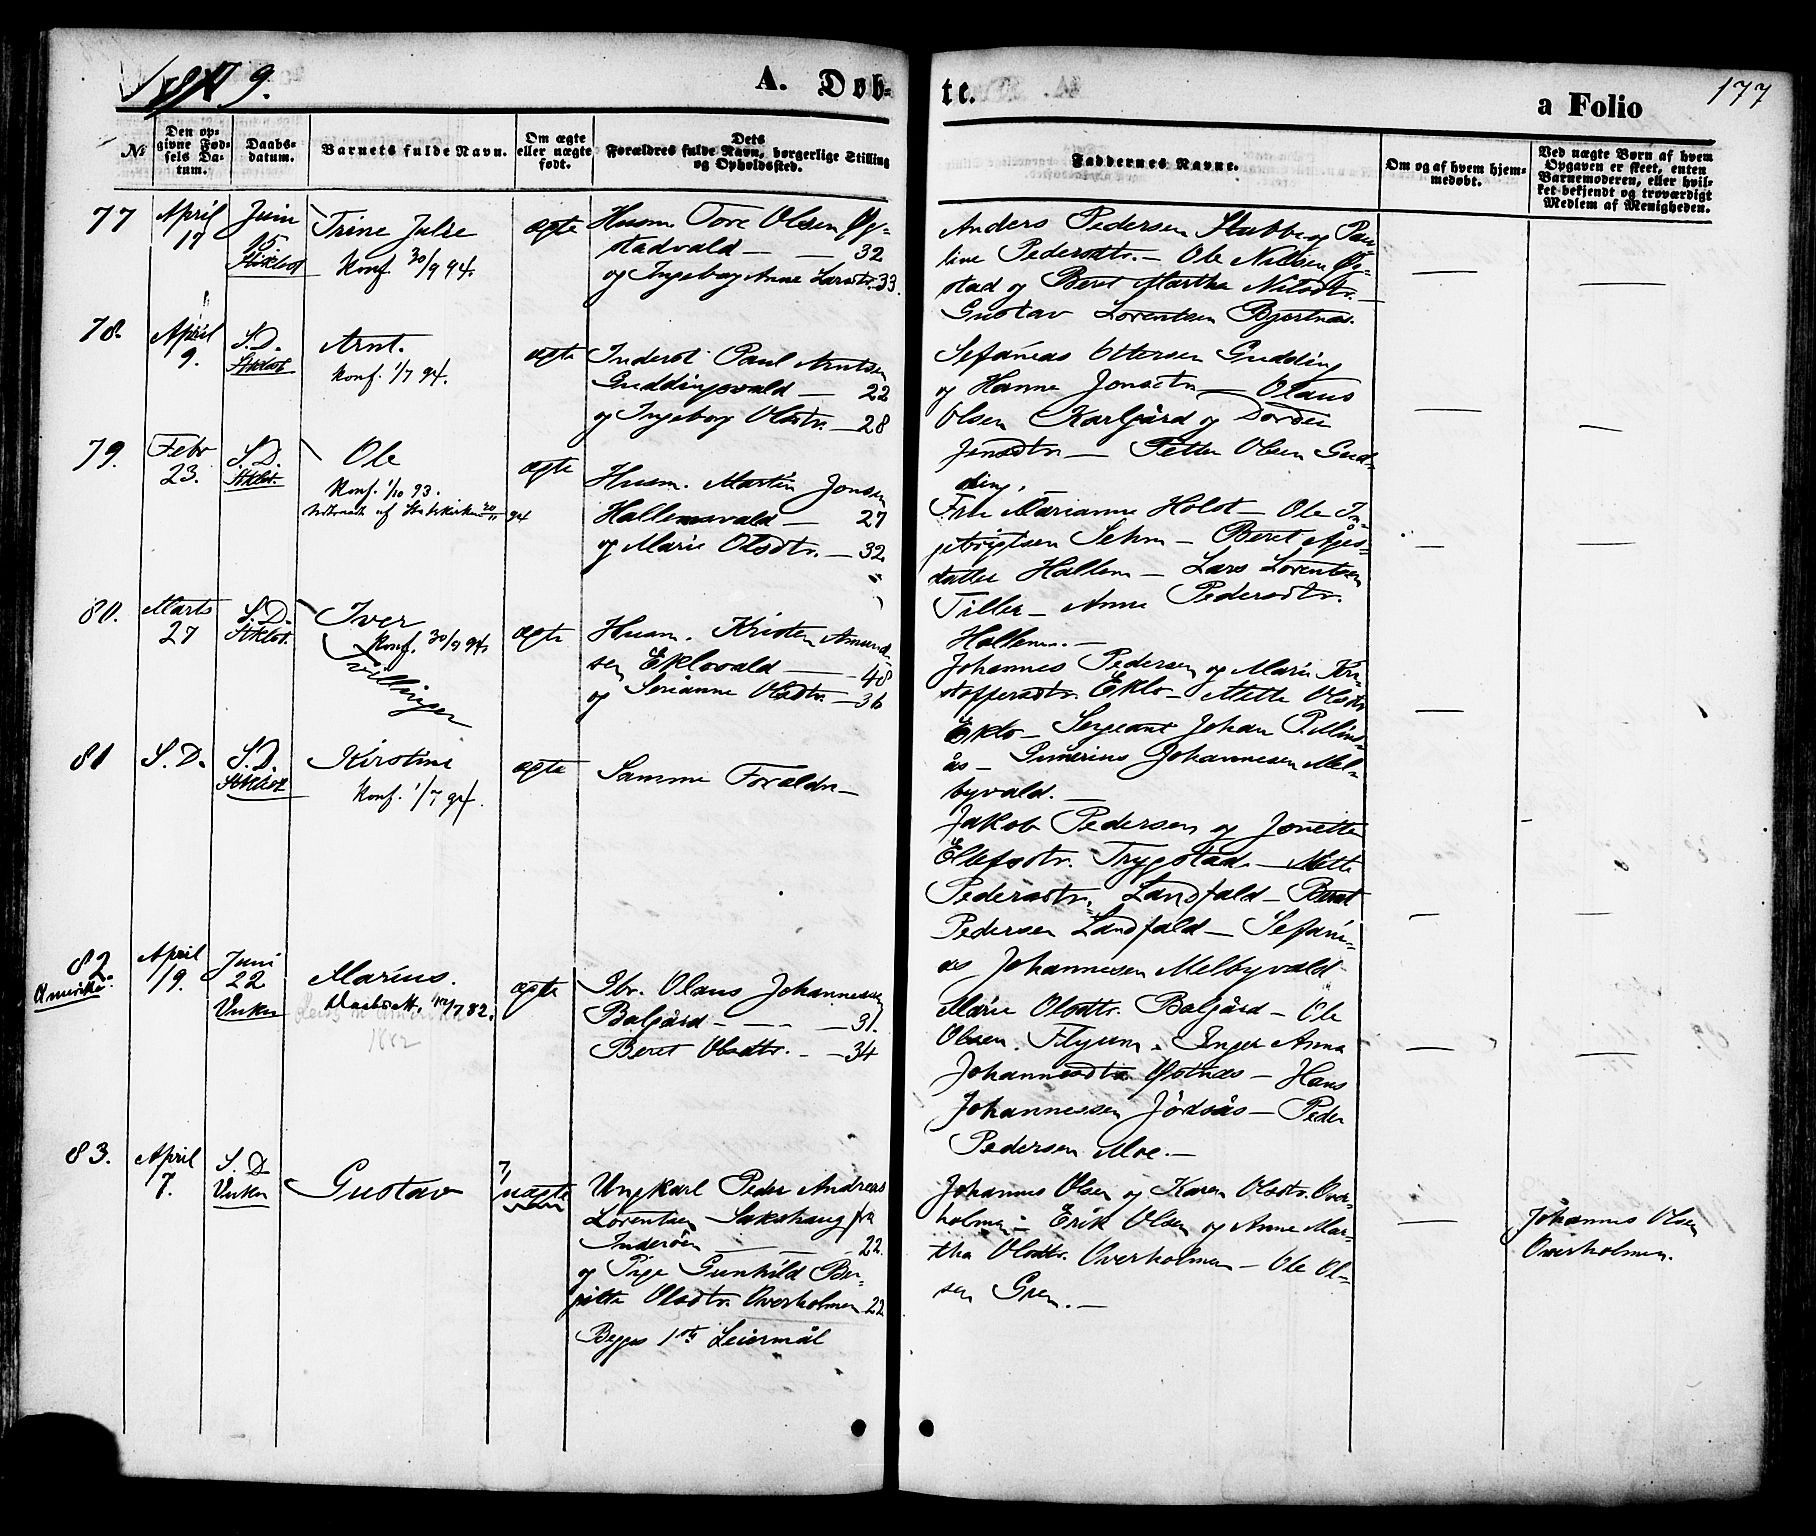 1879.
A. Døb-
te.
a Folio
177
№
Den op-
givne Fød-
sels Da-
tum.
Daabs-
datum.
Barnets fulde Navn.
Om ægte
eller uægte
født.
Dets
Forældres fulde Navn, borgerlige Stilling
og Opholdssted.
Faddernes Navne.
Om og af hvem hjem-
medøbt.
Ved uægte Børn af hvem
Opgaven er skeet, enten
Barnemoderen, eller hvil-
ket bekjendt og troværdigt
Medlem af Menigheden.
77
April
17
Juni
15.
Stiklest
Trine Julie
Konf. 30/9 94.
ægte
Husm. Tore Olsen Øg-
stadvald — — 32
og Ingebog Anne Larsdtr. 33.
Anders Pedersen Stubbe og Pau-
line Pedersdtr. — Ole Nilsen Øg-
stad og Beret Martha Nilsdtr.
Gustav Lorentsen Bjertnæs.
78.
April
9.
S.D.
Stiklest
Arnt.
Konf. 1/7 94.
ægte
Inderst Paul Arntsen
Guddingsvald — 22
og Ingebog Olsdtr. — 28
Sefanias Ottersen Gudding
og Hanna Jonsdtr. — Olaus
Olsen Karlgård og Dordei
Jonsdtr. — Petter Olsen Gud-
ding.
79.
Febr
23.
S.D.
Stiklst.
Ole
Konf. 1/10 93.
af Statskirken 20/11 94
ægte
Husm. Martin Jonsen
Hallemsvald — 27
og Marie Olsdtr. — 32
Fru Marianne Holst — Ole In-
gebrigtsen Sehm — Beret Ages-
datter Hallem — Lars Lorentsen
Tiller — Anne Pedersdtr.
Hallem. —
80.
Marts
27
S.D.
Stiklst.
Iver
Konf. 30/9 94.
Tvillinger
ægte
Husm. Kristen Amund-
sen Eklovald — 48
og Serianne Olsdtr — 36
Johannes Pedersen og Marie Kri-
stoffersdtr. Eklo — Mette Olsdtr
Eklo — Sergeant Johan P. Mins-
ås — Gunerius Johannesen Mel-
byvald. —
81
S.D.
S.D.
Stiklest
Kirstine
Konf. 1/7 94.
ægte
Samme Forældre —
Jakob Pedersen og Jonetta
Ellefsdtr. Trygstad. — Mette
Pedersdtr. Landfald — Beret
Pedersen Landfald — Sefani-
as Johannesen Melbyvald
82.
Amerika.
April
19.
Juni
22
Vuku
Marius.
Daabsatt. 12/7 82.
1882
ægte
Gbr. Olaus Johannessen
Balgård — — — 31.
Beret Olsdtr. — 34
Marie Olsdtr. Balgård — Ole
Olsen Flyum — Inger Anna
Johannesdtr Østnæs — Hans
Johannessen Jødsås — Peder
Pedersen Moe. —
83.
April
7.
S.D
Vuku
Gustav
7/
uægte
Ungkarl Peder Andreas
Lorentsen Sakshaug fra
Inderøen — 22.
og Pige Gunhild Ber-
gitta Olsdtr. Overholmen 22
Begges 1ste Leiermål
Johannes Olsen og Karen Olsdtr. Over-
holmen — Erik Olsen og Anne Mar-
tha Olsdtr. Overholmen — Ole Ol-
sen Gren. —
Johannes Olsen
Overholmen.